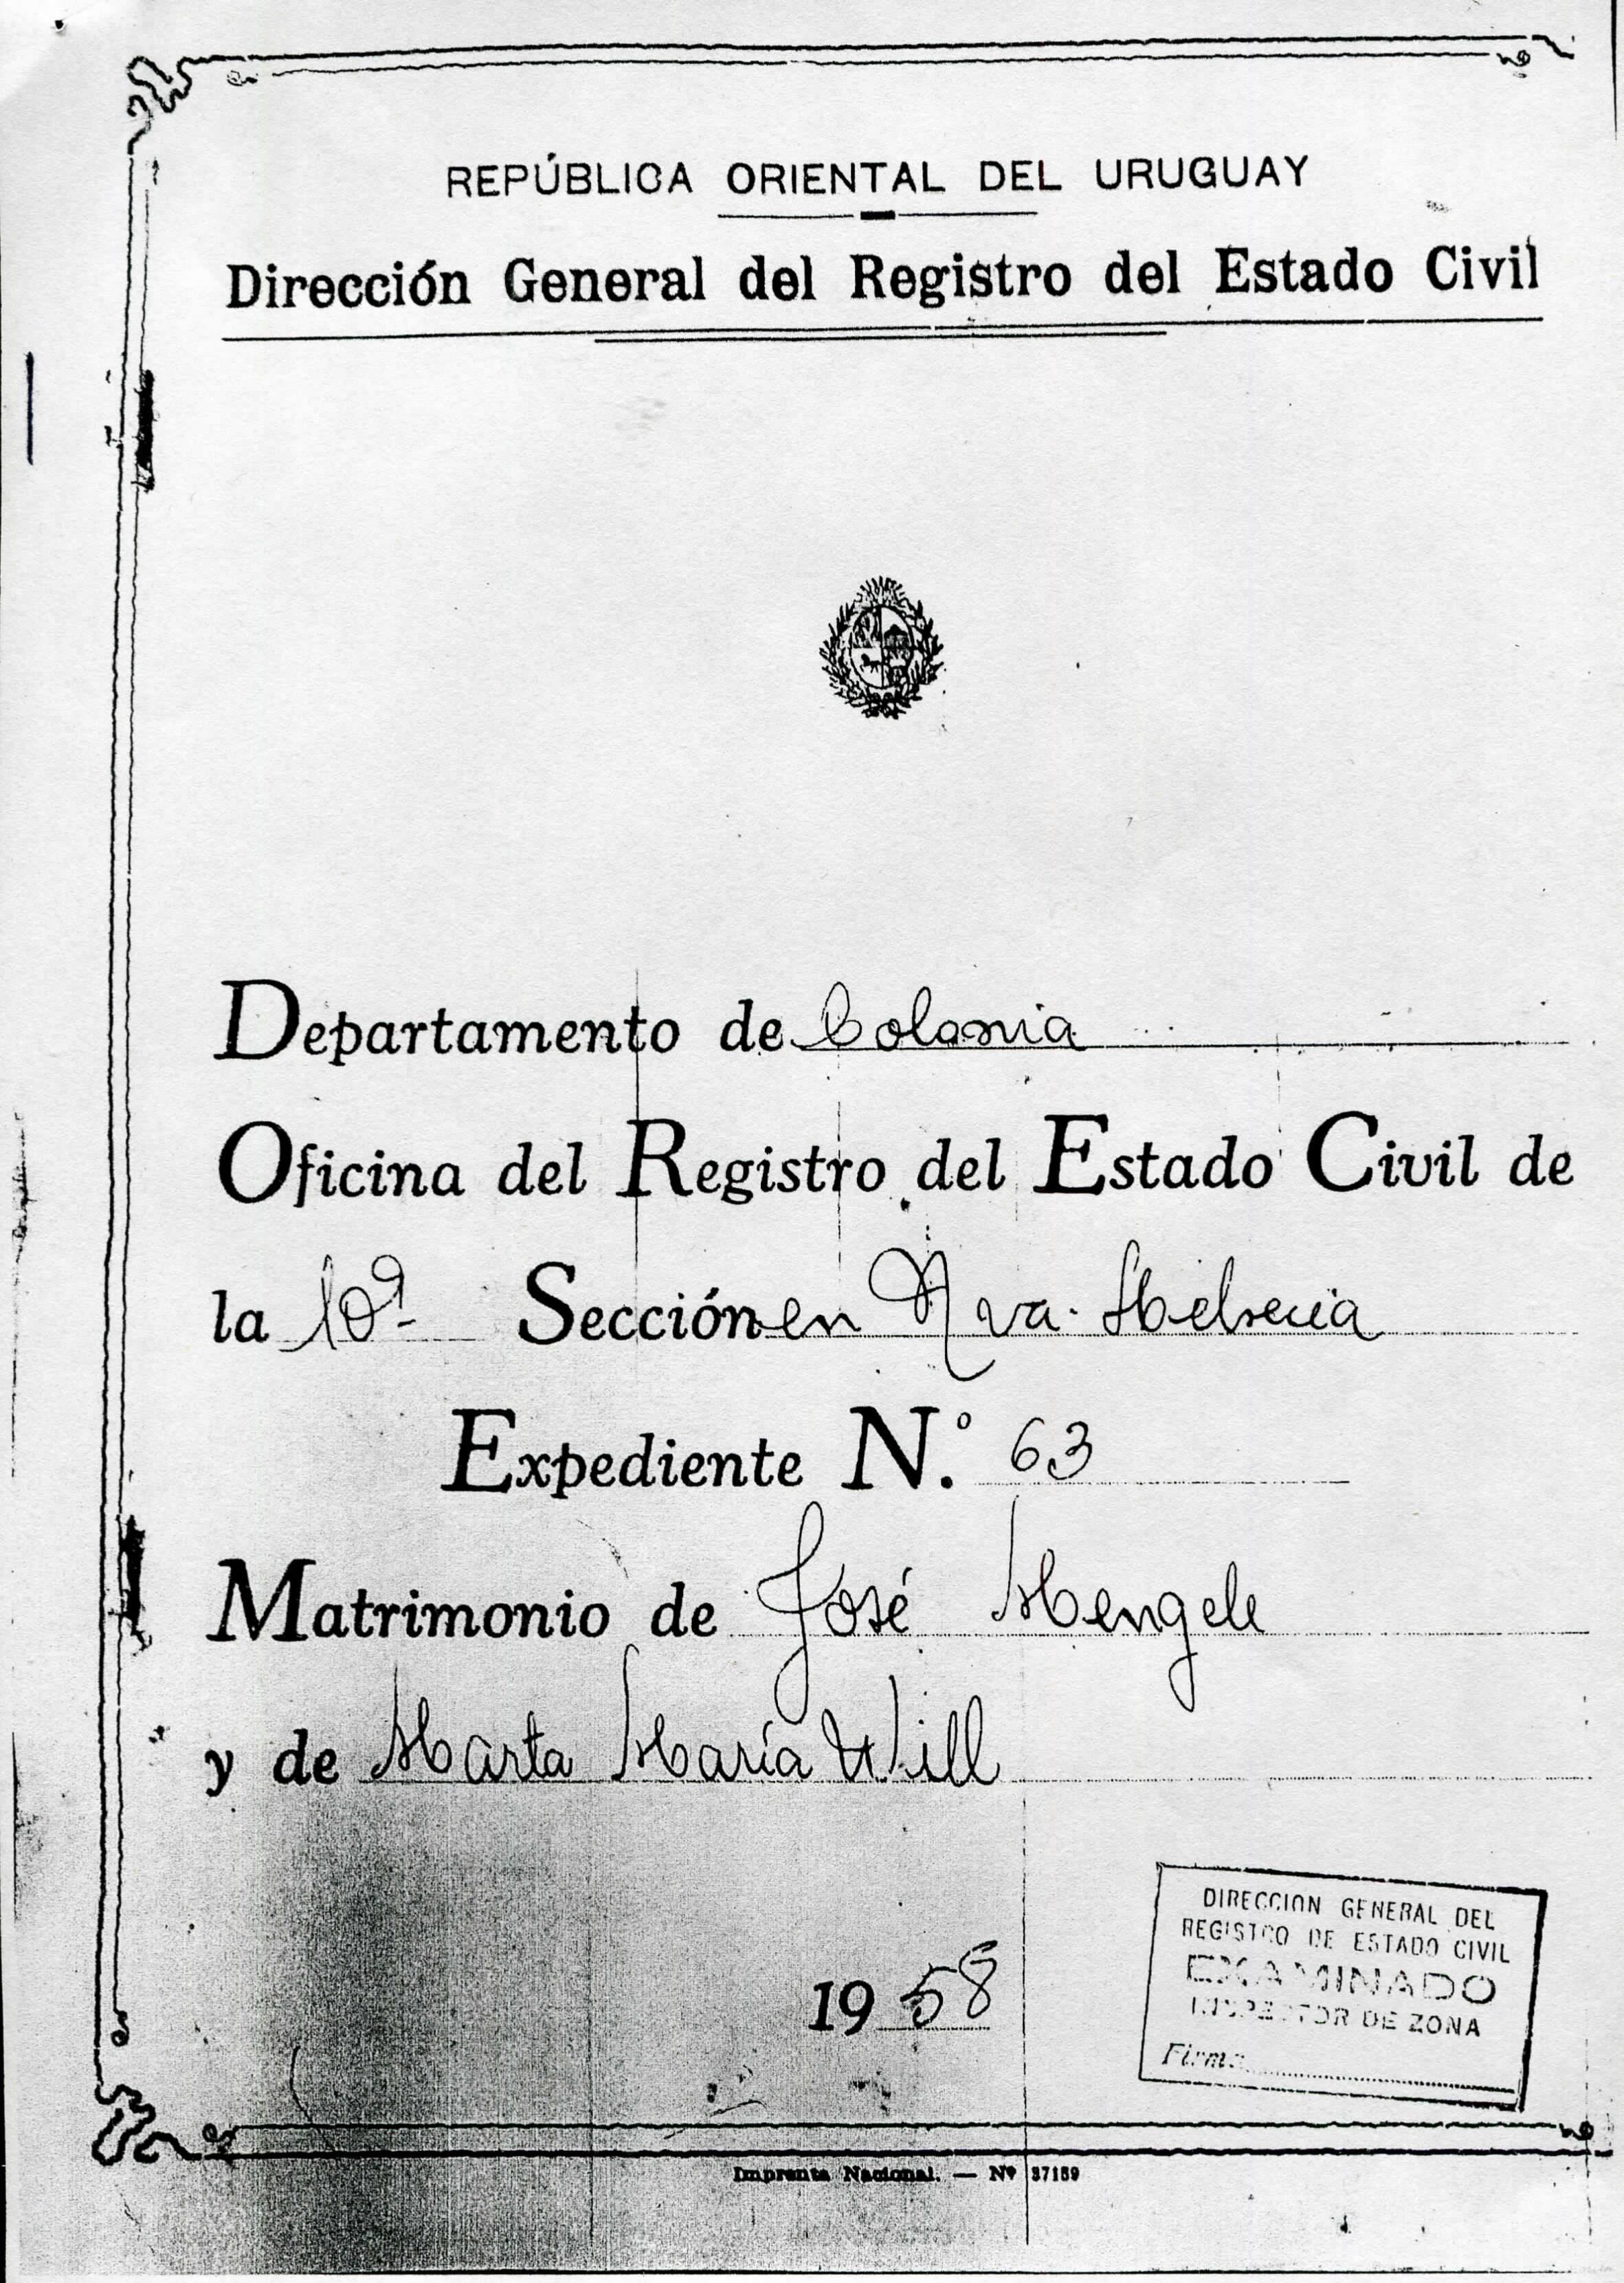 REPÚBLICA ORIENTAL DEL URUGUAY
Dirección General del Registro del Estado Civil
Departamento de Colonia
Oficina del Registro del Estado Civil de
la 10ª Sección en Nva. Helvecia
Expediente N.º 63
Matrimonio de José Mengele
y de Marta María Will
1958
DIRECCION GENERAL DEL
REGISTRO DE ESTADO CIVIL
EXAMINADO
INSPECTOR DE ZONA
Firma
Imprenta Nacional. — Nº 37159